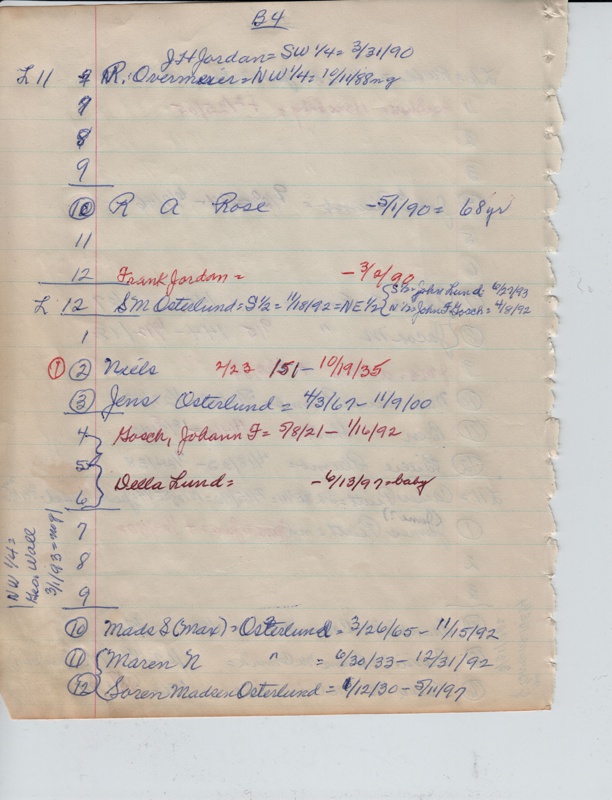 B4
J H Jordan = SW 1/4 = 3/31/90
L 11 7 R. Overmeier = NW 1/4 = 10/11/88 mg
7
8
9
10 R A Rose - 5/1/90 = 68 yr
11
12 Frank Jordan = - 3/ /90
L 12 S M Osterlund = S 1/2 = 11/18/92 = NE 1/2 { S 1/2 = John Lund = 6/27/93
N 1/2 = John F Gosch = 4/8/92
1
1 2 Niels 2/23 151 - 10/19/35
3 Jens Osterlund = 4/3/67 - 11/9/00
4 Gosch, Johann F = 5/8/21 - 1/16/92
5
6 Della Lund = - 6/13/97 = baby
7
8
9
NW 1/4 =
Geo Wall
3/1/93 =
10 Mads S (Max) = Osterlund = 3/26/65 - 11/15/92
11 { Maren N " = 6/30/33 - 12/31/92
12 Soren Madsen Osterlund = 1/12/30 - 5/11/97